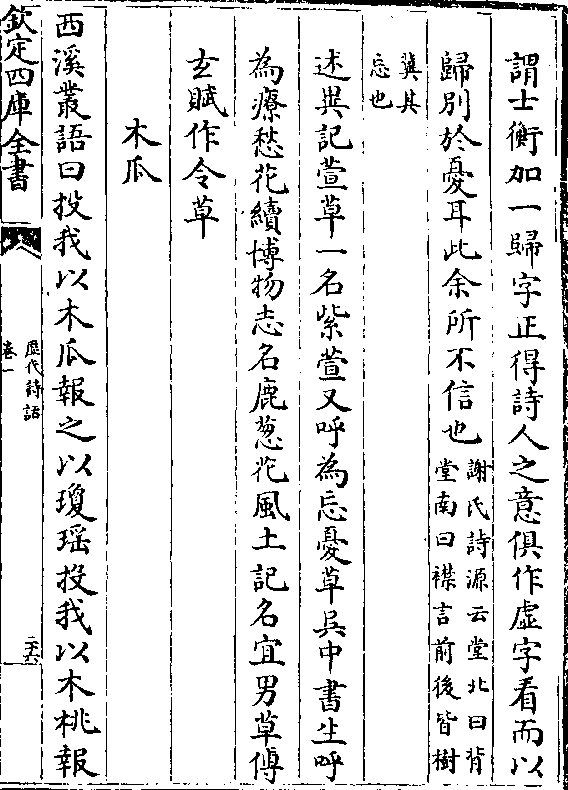 謂士衡加一歸字正得詩人之意俱作虛字看而以
歸別於憂耳此余所不信也謝氏詩源云堂北曰背
堂南曰襟言前後皆樹
蕿其
忘也
述異記萱草一名紫萱又呼為忘憂草吳中書生呼
為療愁花續博物志名鹿葱花風土記名宜男草傅
玄賦作令草
木瓜
西溪叢語曰投我以木瓜報之以瓊瑶投我以木桃報
欽定四庫全書
歷代詩話
卷一
二十六